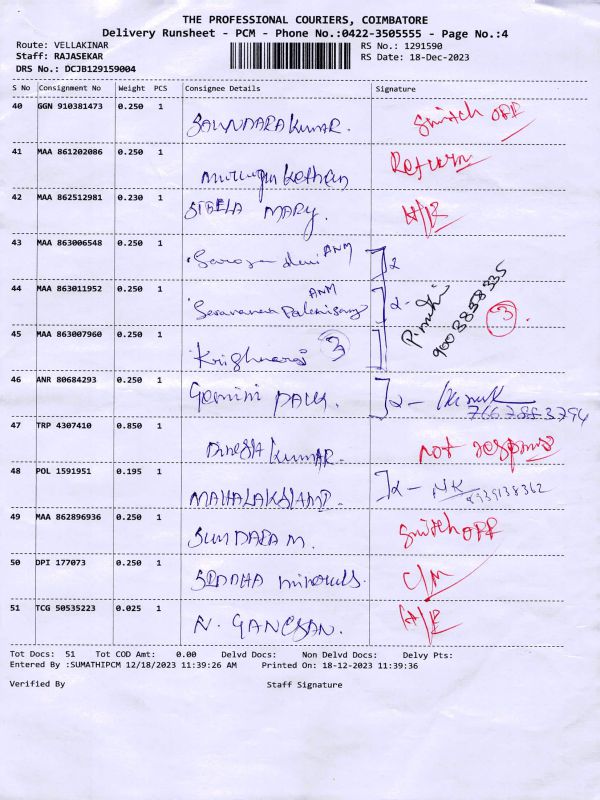 THE PROFESSIONAL COURIERS, COIMBATORE
Delivery Runsheet - PCM - Phone No.:0422-3505555 - Page No.:4
Route: VELLAKINAR RS No.: 1291590
Staff: RAJASEKAR RS Date: 18-Dec-2023
DRS No.: DCJB129159004
S No Consignment No Weight PCS Consignee Details Signature
40 GGN 910381473 0.250 1 SOUNDARA KUMAR. Switch OFF
41 MAA 861202086 0.250 1 Return
42 MAA 862512981 0.230 1 STEELA MARY.
43 MAA 863006548 0.250 1 Saroja devi ANM 2
44 MAA 863011952 0.250 1 Saravana Palanisamy ANM 2- 9003858335 3
45 MAA 863007960 0.250 1 Krishnaraj 3
46 ANR 80684293 0.250 1 Gemini PAUL. 2- 7667883794
47 TRP 4307410 0.850 1 Dinesh Kumar. not response
48 POL 1591951 0.195 1 MAHALAKSHMI. 2- NK 8939138362
49 MAA 862896936 0.250 1 SUNDARAM. Switch OFF
50 DPI 177073 0.250 1 SIDDHA minerals. C/M
51 TCG 50535223 0.025 1 N. GANESAN.
Tot Docs: 51 Tot COD Amt: 0.00 Delvd Docs: Non Delvd Docs: Delvy Pts:
Entered By :SUMATHIPCM 12/18/2023 11:39:26 AM Printed On: 18-12-2023 11:39:36
Verified By Staff Signature